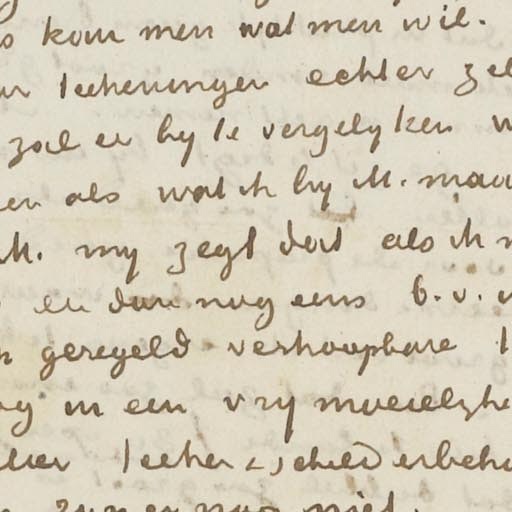 kom men wat men wil.
teekeningen echter zel
zal er by te vergelyken w
en als wat ik by M. maa
M. my zegt dat als ik
en dan nog eens b.v.
geregeld verkoopbare
in een vry moeielykhe
teeken & schilderbeho
zyn er nog niet.